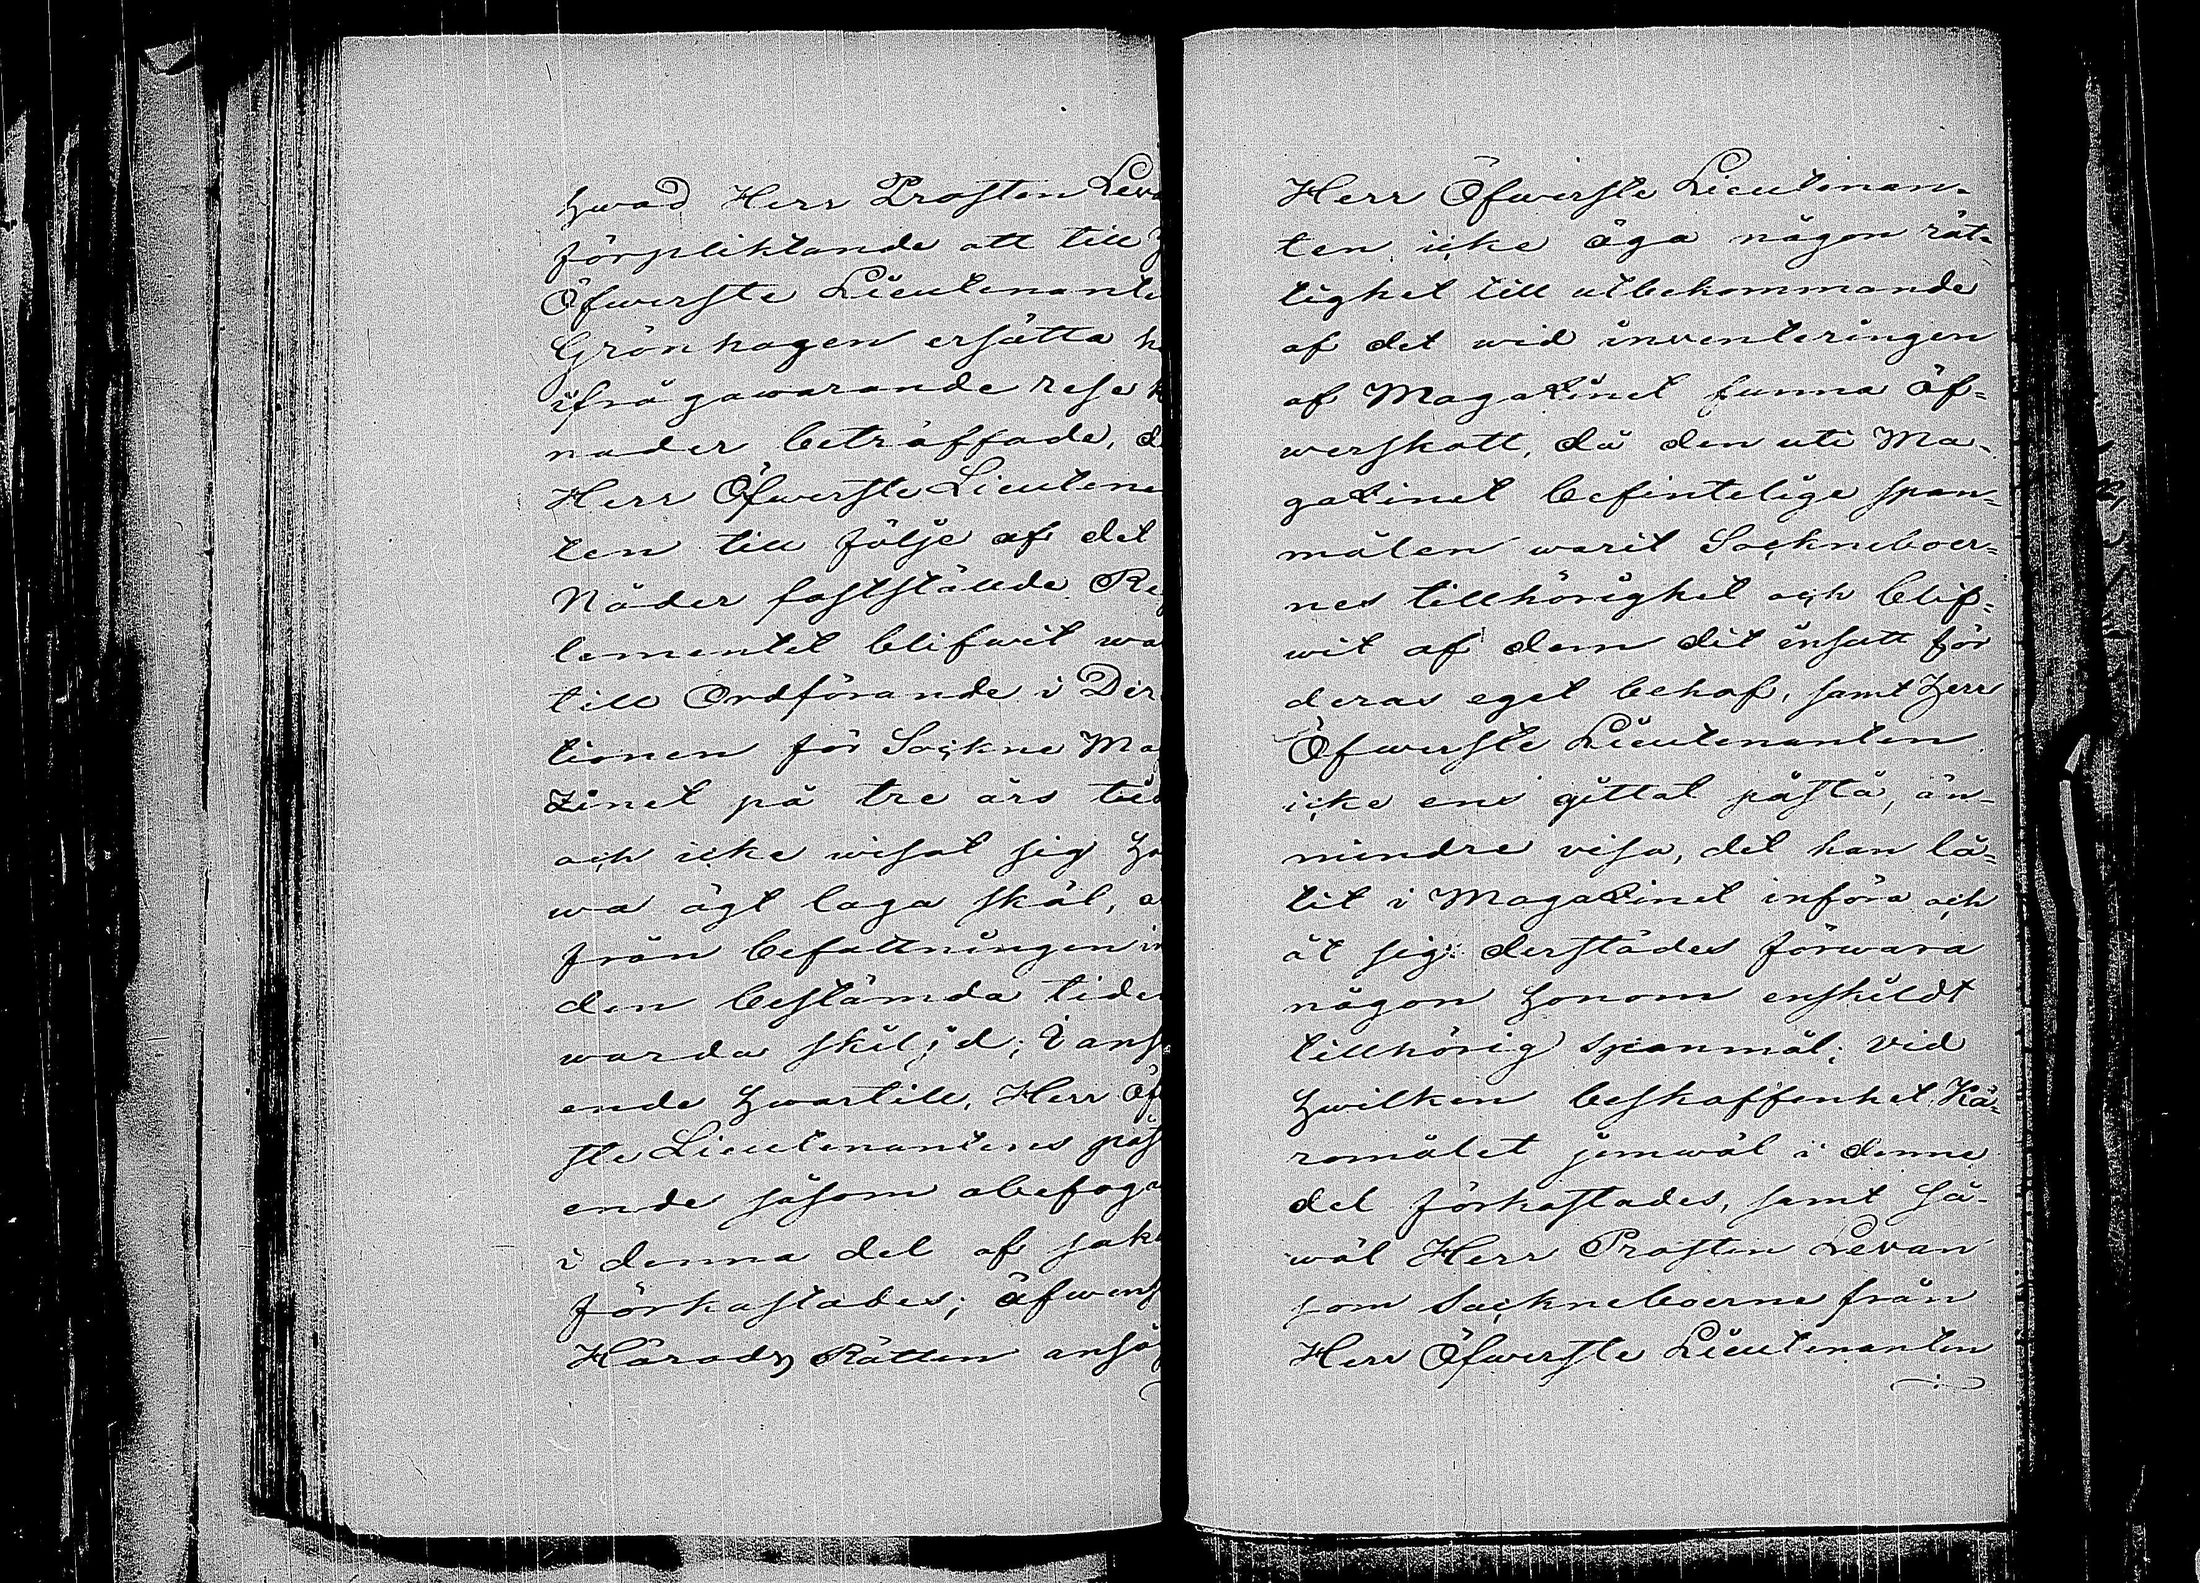 hwad Herr Prosten Leva
förpliktande att till H
Öfwerste Lieutenante
Grönhagen ersätta h
ifrågawarande rese k
nader beträffade, d
Herr Öfwerste Lieutena
ten till följe af det
Nåder faststälde Reg
lementet blifwit wa
till Ordförande i Dir
tionen för Sockne Ma
zinet på tre års tid
och icke wisat sig ha
wa ägt laga skäl, a
från befattningen in
den bestämda tiden
warda skiljd; I ans
ende hwartill, Herr Öf
ste Lieutenantens påst
ende såsom obefoga
i denna del af sak
förkastades; äfwens
Härads Rätten ansåg
Herr Öfwerste Lieutenan-
ten icke äga någon rät-
tighet till utbekommande
af det wid inventeringen
af Magazinet funna öf-
werskott, då den uti Ma-
gazinet befintelige span-
målen warit Sockneboer-
nes tillhörighet och blif-
wit af dem dit insatt för
deras eget behof, samt Herr
Öfwerste Lieutenanten
icke ens gittat påstå, än-
mindre visa, det han lå-
tit i Magazinet införa och
åt sig derstädes förwara
någon honom enskildt
tillhörig spanmål; vid
hwilken beskaffenhet Kä-
romålet jemwäl i denne
del förkastades, samt så-
wäl Herr Prosten Levan
som Sockneboerne från
Herr Öfwerste Lieutenanten